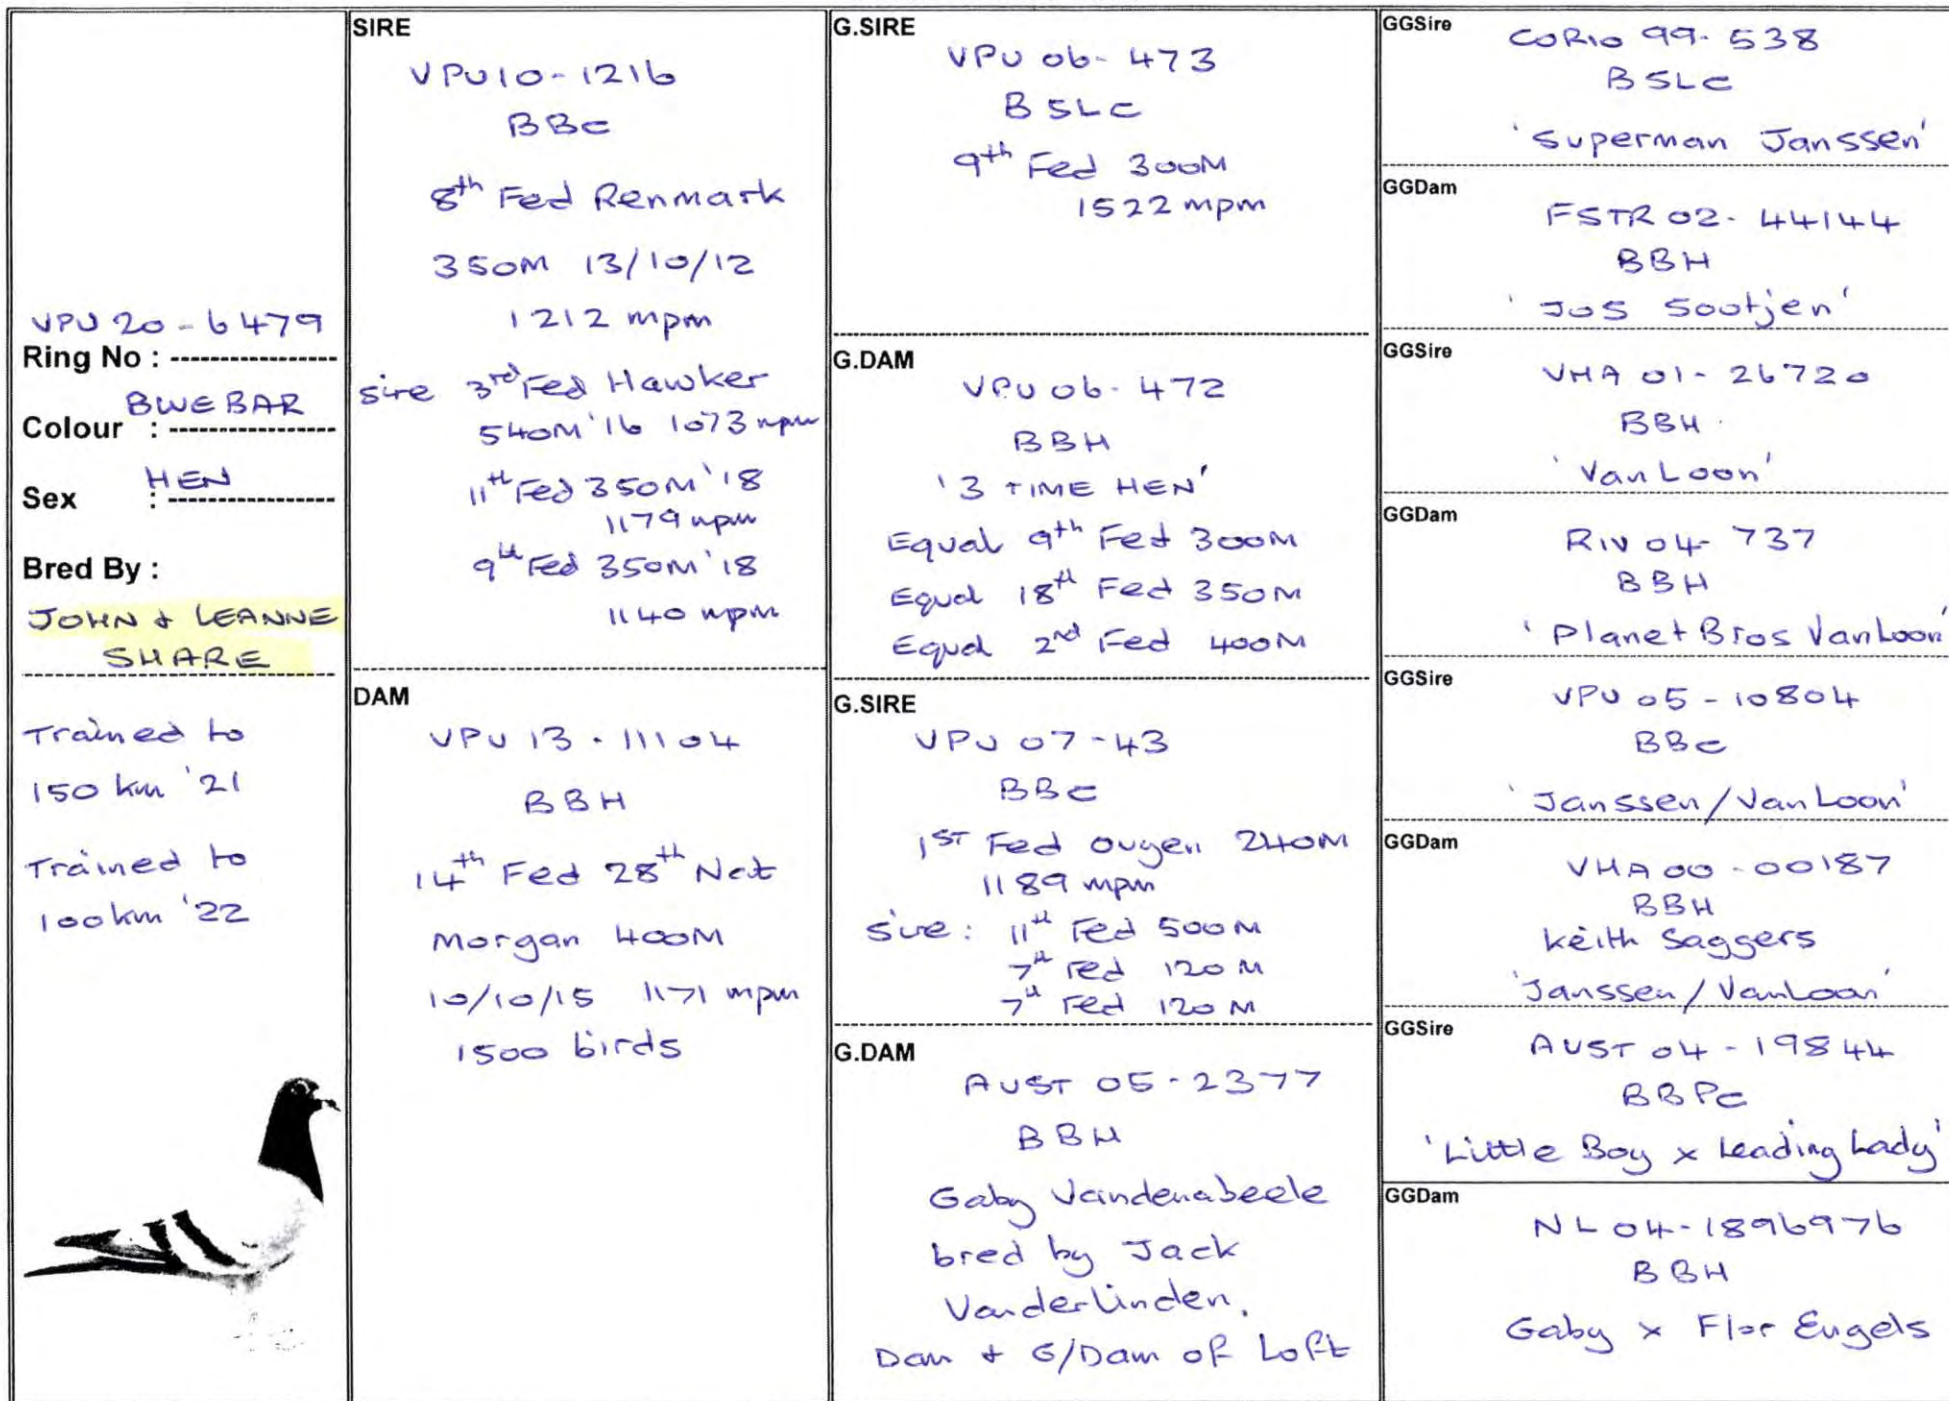 VPU 20-6479
Ring No :
BLUE BAR
Colour :
HEN
Sex :
Bred By :
JOHN + LEANNE
SHARE
Trained to
150 km '21
Trained to
100km '22
SIRE
VPU 10-1216
BBC
8th Fed Renmark
350M 13/10/12
1212 mpm
sire 3rd Fed Hawker
540M '16 1073 mpm
11th Fed 350M '18
1179 mpm
9th Fed 350M '18
1140 mpm
DAM
VPU 13-11104
BBH
14th Fed 28th Nat
Morgan 400M
10/10/15 1171 mpm
1500 birds
G.SIRE
VPU 06-473
BSLC
9th Fed 300M
1522 mpm
G.DAM
VPU 06-472
BBH
'3 TIME HEN'
Equal 9th Fed 300M
Equal 18th Fed 350M
Equal 2nd Fed 400M
G.SIRE
VPU 07-43
BBC
1ST Fed Ouyen 240M
1189 mpm
sire: 11th Fed 500M
7th Fed 120M
7th Fed 120M
G.DAM
AUST 05-2377
BBH
Gaby Vandenabeele
bred by Jack
Vanderlinden.
Dam + G/Dam of Loft
GGSire
CORIO 99-538
BSLC
'Superman Janssen'
GGDam
FSTR 02-44144
BBH
'Jos Sootjen'
GGSire
VHA 01-26720
BBH
'Van Loon'
GGDam
RIV 04-737
BBH
'Planet Bros VanLoon'
GGSire
VPU 05-10804
BBC
'Janssen/VanLoon'
GGDam
VHA 00-00187
BBH
Keith Saggers
'Janssen/VanLoon'
GGSire
AUST 04-19844
BBPC
'Little Boy x Leading Lady'
GGDam
NL 04-1896976
BBH
Gaby x Flor Engels